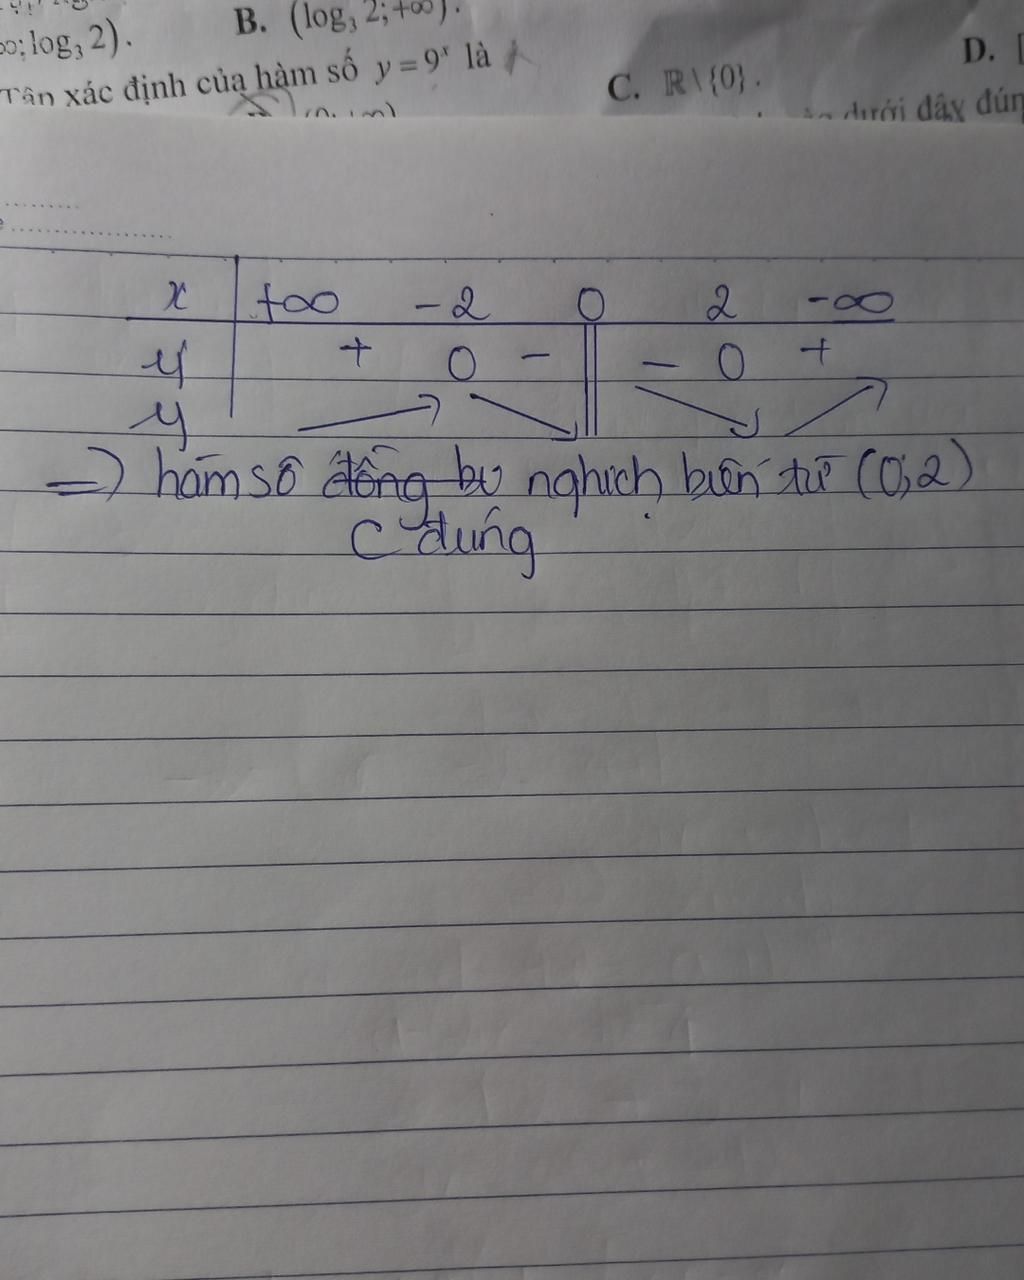 B. (log₃ 2; +∞).
∞; log₃ 2).
xác định của hàm số y = 9ˣ là
C. ℝ \ {0}.
D. [
dưới đây đún
x +∞ -2 0 2 -∞
y' + 0 - || - 0 +
y
=> hàm số đồng bu nghịch biến từ (0; 2)
C đúng